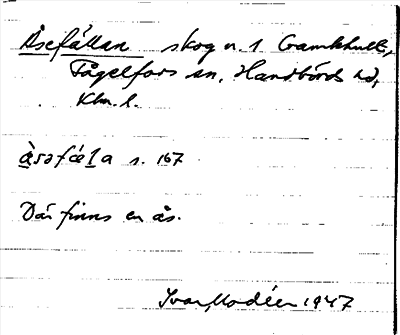 Åsefällan skog v. 1 Cramkhult,
Fågelfors sn, Handbörds hd,
Klm. l.
àsəfæḷa s. 167
Där finns en ås.
Ivar Modéer 1947